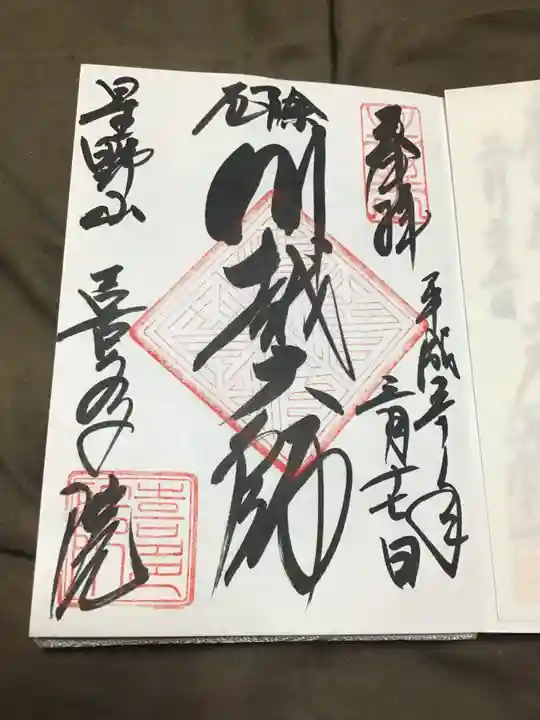 奉拝
平成三十一年
三月十七日
厄除
川越大師
星野山
喜多院